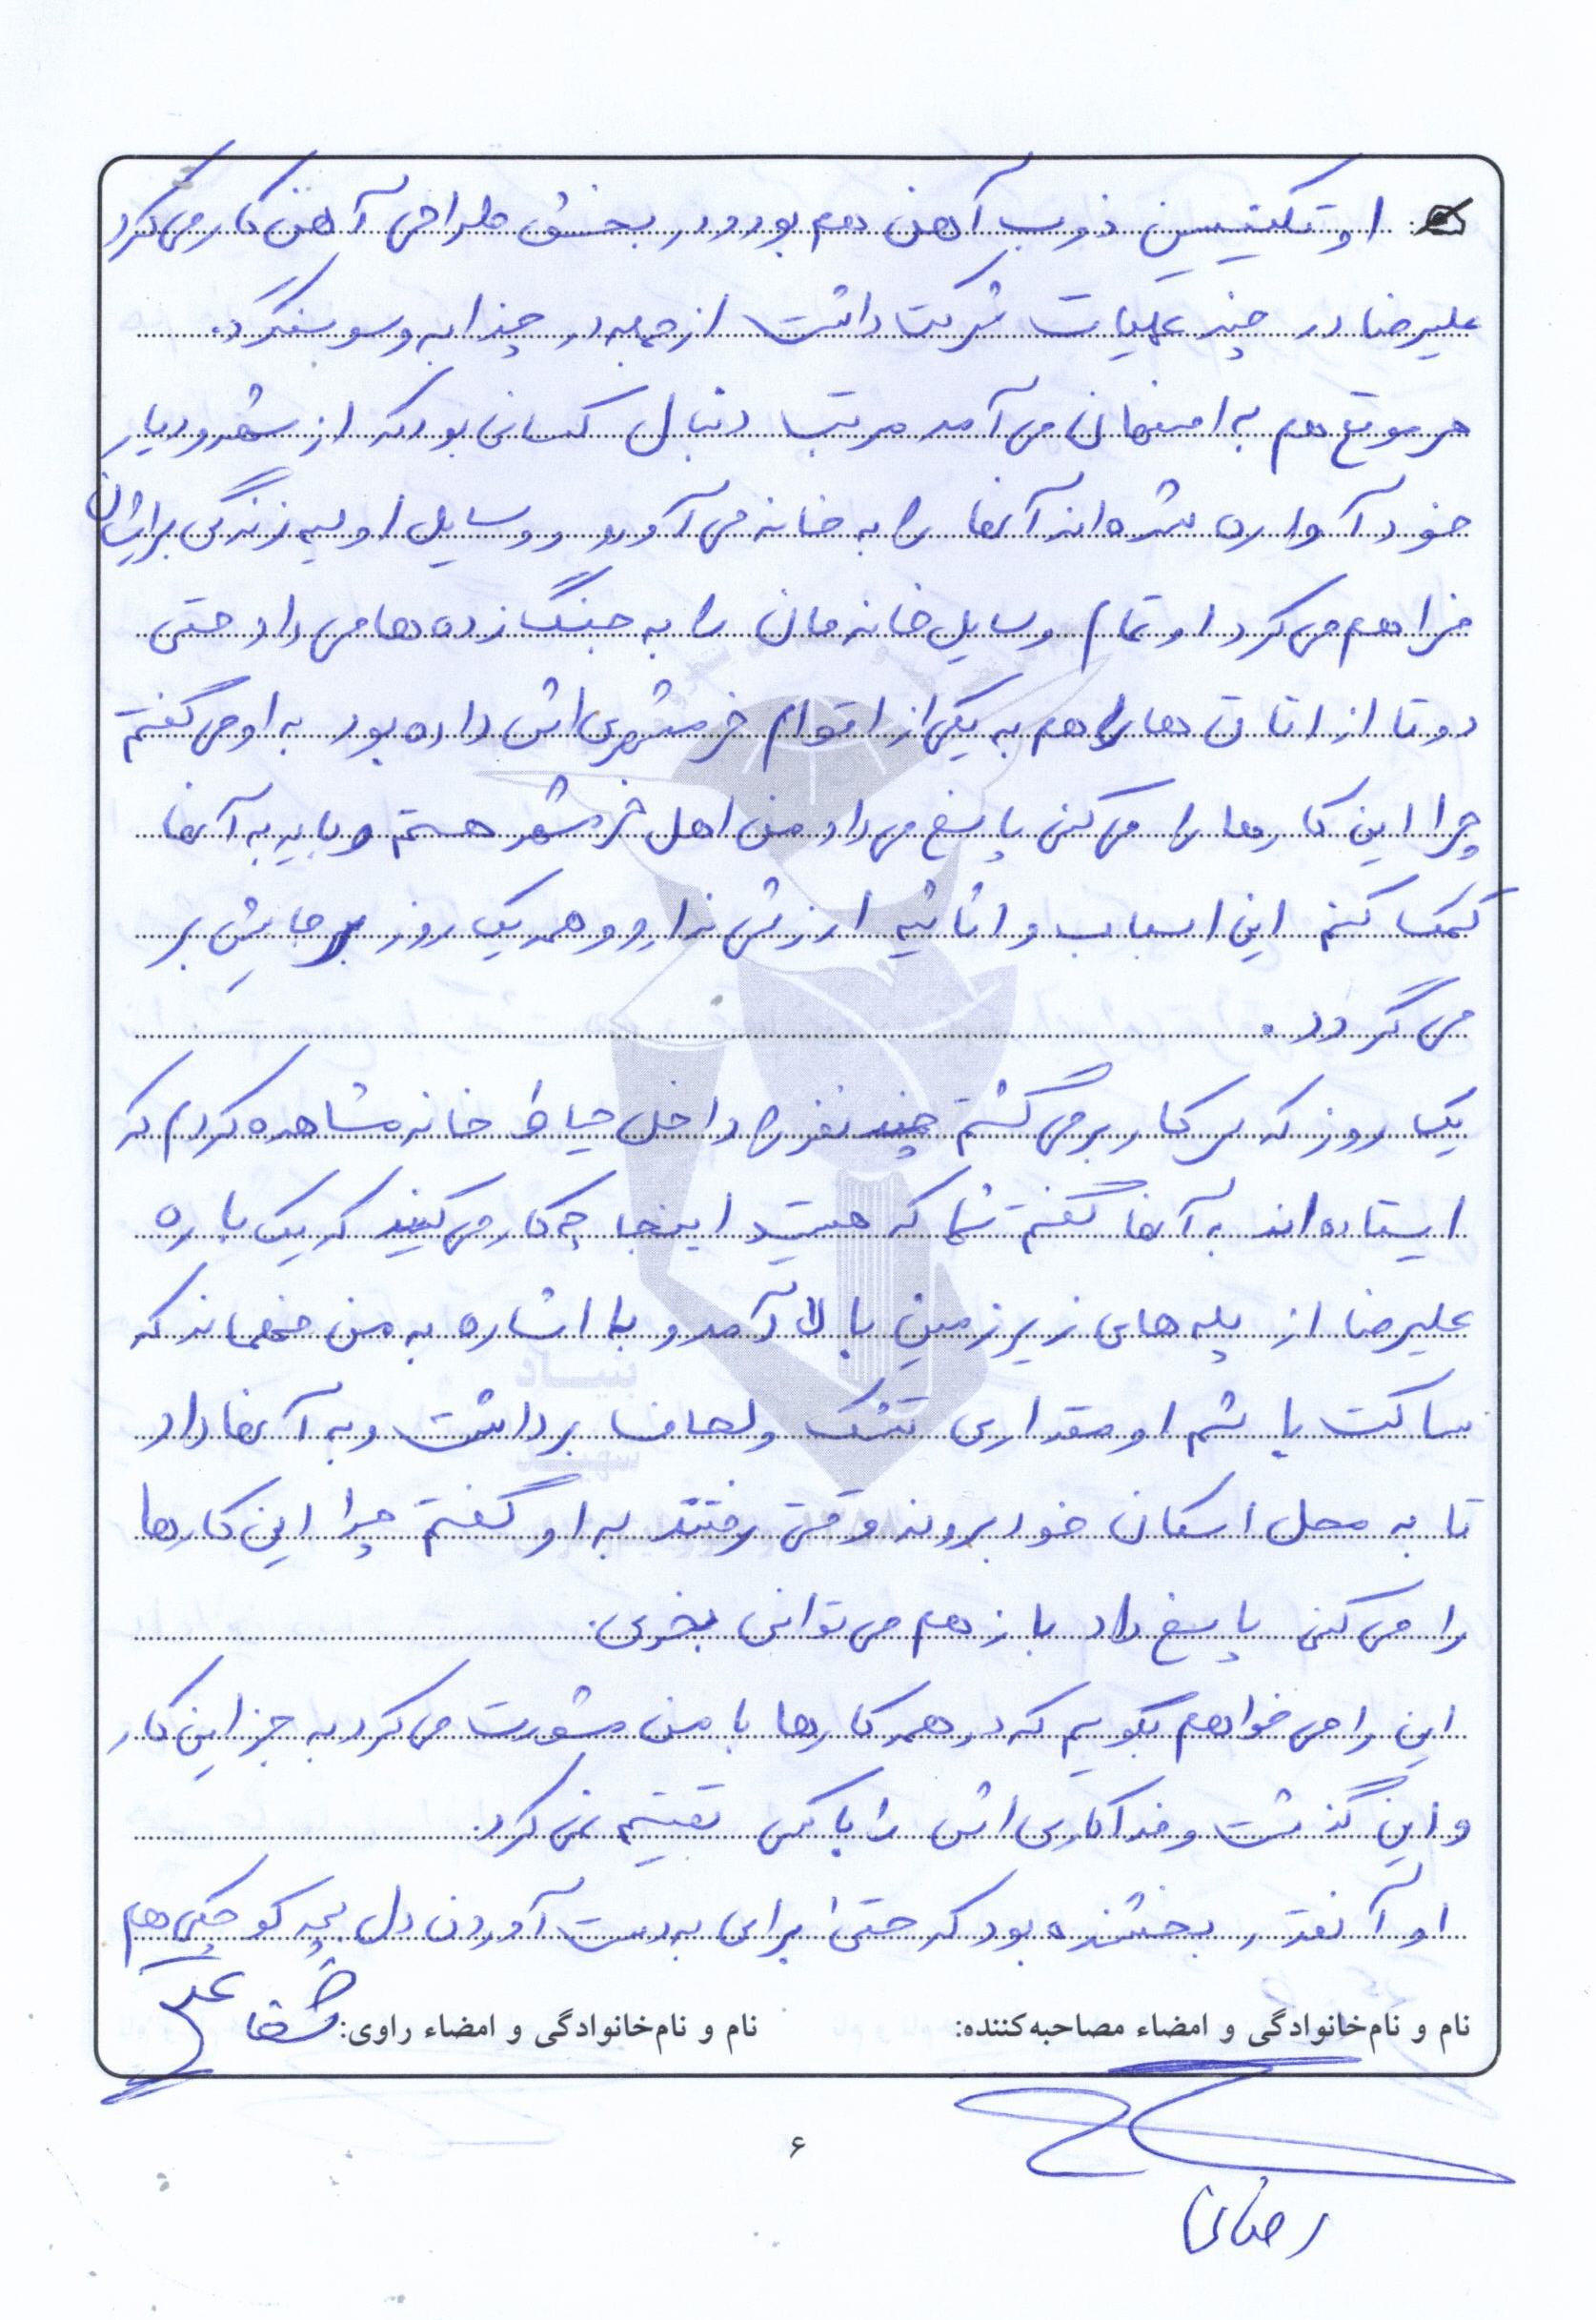 او تکنیسین ذوب آهن هم بود و در بخش طراحی آهن کار می کرد
علیرضا در چند عملیات شرکت داشت از جمله در چزابه و سوسنگرد.
هر موقع هم به اصفهان می آمد مرتب دنبال کسانی بود که از شهر و دیار
خود آواره شده اند آنها را به خانه می آورد و وسایل اولیه زندگی برایشان
فراهم می کرد او تمام وسایل خانه مان را به جنگ زده ها می داد حتی
دو تا از اتاق ها را هم به یکی از اقوام خرمشهری اش داده بود به او می گفتم
چرا این کارها را می کنی پاسخ می داد من اهل خرمشهر هستم و باید به آنها
کمک کنم این اسباب و اثاثیه ارزش ندارد و همه یک روز بر جایش بر
می گردد.
یک روز که سر کار بر می گشتم چند نفر را داخل حیاط خانه مشاهده کردم که
ایستاده اند به آنها گفتم شما که هستید اینجا چه کار می کنید که یک باره
علیرضا از پله های زیرزمین بالا آمد و با اشاره به من فهماند که
ساکت باشم او مقداری تشک و لحاف برداشت و به آنها داد
تا به محل اسکان خود بروند وقتی رفتند به او گفتم چرا این کارها
را می کنی پاسخ داد باز هم می توانی بخری.
این را می خواهم بگویم که در همه کارها با من مشورت می کرد به جز این کار
و این گذشت و فداکاری اش را با کسی تقسیم نمی کرد.
او آنقدر بخشنده بود که حتی برای به دست آوردن دل بچه کوچکی هم
نام و نام‌خانوادگی و امضاء مصاحبه‌کننده: نام و نام‌خانوادگی و امضاء راوی:
۶
بنیاد
شهید